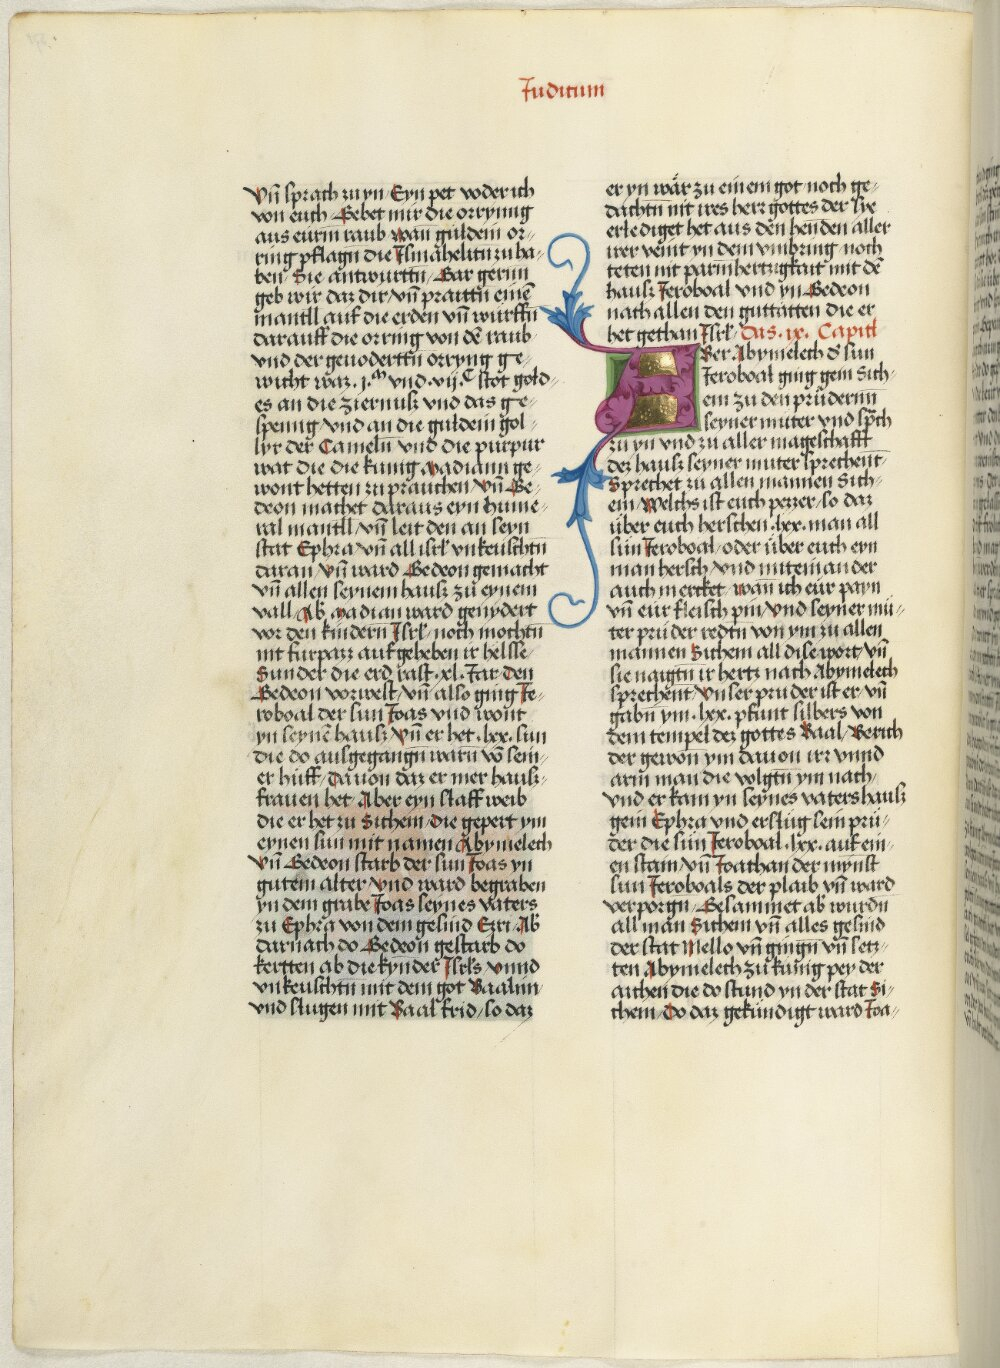 Iudicum
Vn̄ sprach zu yn Eyn pet voder ich
von euch Gebet mir die orryning
aus eurm raub wan guldein or⸗
ring pflagn die Ismahelitn zu ha⸗
ben Sie antwurttn Gar gernn
geb wir daz dir vn̄ praittn einē
mantll auf die erden vn̄ wurffn
darauff die orring von dē raub
vnd der genodertn orryng ge⸗
wicht waz .j.ᵐ vnd .vij.ᶜ stot gold⸗
es an die ziernuß vnd das ge⸗
speng vnd an die guldein gol⸗
lyr der Cameln vnd die purpur
wat die die kunig Madiann ge⸗
wont hetten zu prauchen Vn̄ Ge⸗
deon machet daraus eyn hume⸗
ral mantll vn̄ leit den an seyn
stat Ephra vn̄ all isrl̄ vnkeuschtn
daran vn̄ ward Gedeon gemacht
vn̄ allen seynem hauß zu eynem
vall Ab Madian ward genydert
vor den kindern Isrl̄ noch mochtn
nit furpaz aufgeheben ir helsse
Sunder die erd rast .xl. Jar Den
Gedeon vorwest vn̄ also ging Je⸗
roboal der sun Joas vnd wont
yn seynē hauß Vn̄ er het .lxx. sun
die do ausgegangn warn vō sein⸗
er huff Dauon daz er mer hauß⸗
frauen het Aber eyn slaffweib
die er het zu Sithem die gepert ym
eynen sun mit namen Abymelech
Vn̄ Gedeon starb der sun Joas yn
gutem alter vnd ward begraben
yn dem grabe Joas seynes vaters
zu Ephra von dem gesind Ezri Ab
darnach do Gedeon gestarb do
kertten ab die kynder Isrl̄s vnnd
vnkeuschtn mit dem got Baalim
vnd slugen mit Baal frid so daz
er yn wär zu einem got noch ge⸗
dachtn nit ires herr gottes der sye
erlediget het aus den henden aller
irer veint yn dem vmbring noch
teten nit parmhertzigkait mit dē
hauß Jeroboal vnd yn Gedeon
nach allen den guttatten die er
het gethan Isrl̄ Das .ix. Capitl
Aber Abymelech d' sun
Jeroboal ging gein Sich⸗
em zu den prüdernn
seyner muter vnd sp̄ch
zu yn vnd zu aller mageschafft
dez hauß seyner muter sprechent
Sprechet zu allen mannen Sich⸗
em Welchs ist euch pezzer so daz
über euch herschen .lxx. man all
sün Jeroboal oder über euch eyn
man hersch vnd miteinander
auch mercket wan̄ ich eür payn
vn̄ eür fleisch pin vnd seyner mü⸗
ter prüder redtn von ym zu allen
mannen Sithem all dise wort vn̄
sie naigtn ir hertz nach Abymelech
sprechent Vnser pruder ist er vn̄
gabn ym .lxx. pfunt silbers von
dem tempel dez gottes Baal Berith
der gewon ym dauon irr vnnd
arm man die volgtn ym nach
vnd er kam yn seynes vaters hauß
gein Ephra vnd erslug sein prü⸗
der die sün Jeroboal .lxx. auf ein⸗
en stain vn̄ Joathan der mynst
sun Jeroboals der plaib vn̄ ward
verporgn Gesammet ab wurdn
all man Sithem vn̄ alles gesind
der stat Mello vn̄ gingn vn̄ setz⸗
ten Abymelech zu kunig pey der
aichen die do stund yn der stat Si⸗
chem Do daz gekündigt ward Joa⸗